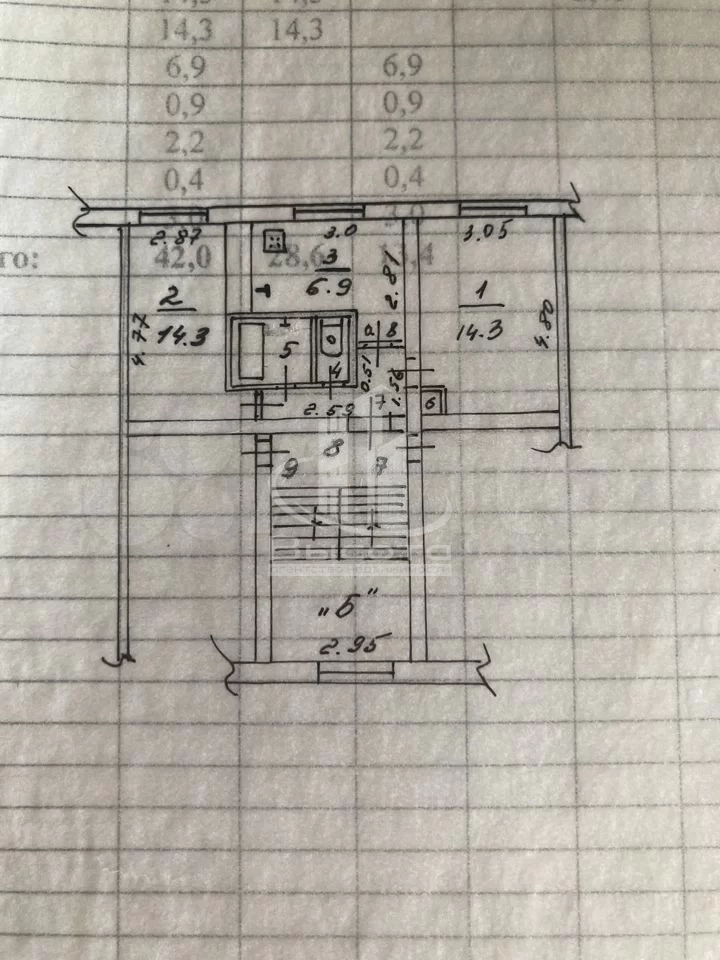 14,3 14,3
6,9 6,9
0,9 0,9
2,2 2,2
0,4 0,4
3,0 3,0
го: 42,0 28,6 13,4
2.87 3.0 3.05
2 14.3 4.77
3 6.9 2.81
1 14.3 4.80
5 4 0.51 1.56 6
2.59 7
9 8 7
"Б"
2.95